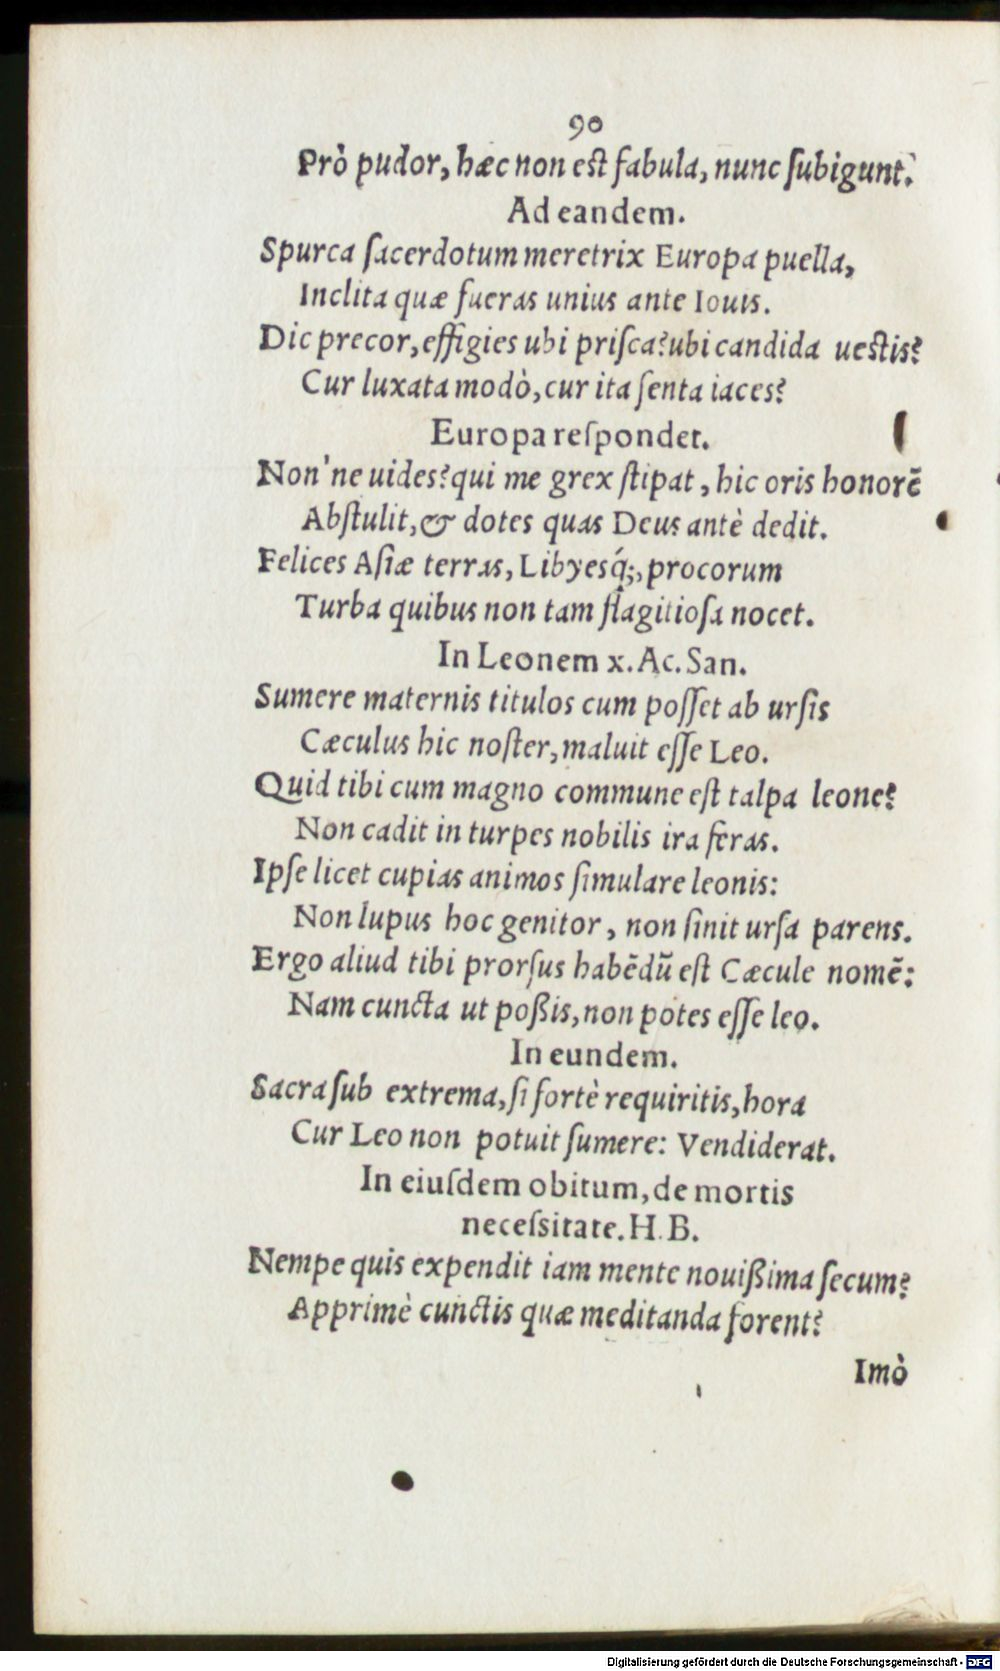 90
Prò pudor, hæc non est fabula, nunc ſubigunt.
Ad eandem.
Spurca ſacerdotum meretrix Europa puella,
Inclita quæ fueras unius ante Iouis.
Dic precor, effigies ubi priſca? ubi candida ueſtis?
Cur luxata modò, cur ita ſenta iaces?
Europa reſpondet.
Non'ne uides? qui me grex ſtipat, hic oris honorē
Abſtulit, & dotes quas Deus antè dedit.
Felices Aſiæ terras, Libyesq́;, procorum
Turba quibus non tam flagitioſa nocet.
In Leonem x. Ac. San.
Sumere maternis titulos cum poſſet ab urſis
Cæculus hic noſter, maluit eſſe Leo.
Quid tibi cum magno commune eſt talpa leone?
Non cadit in turpes nobilis ira feras.
Ipſe licet cupias animos ſimulare leonis:
Non lupus hoc genitor, non ſinit urſa parens.
Ergo aliud tibi prorſus habēdū eſt Cæcule nomē:
Nam cuncta ut poßis, non potes eſſe leo.
In eundem.
Sacra ſub extrema, ſi fortè requiritis, hora
Cur Leo non potuit ſumere: Vendiderat.
In eiuſdem obitum, de mortis
neceſsitate. H. B.
Nempe quis expendit iam mente nouißima ſecum?
Apprimè cunctis quæ meditanda forent?
Imò
Digitalisierung gefördert durch die Deutsche Forschungsgemeinschaft - DFG